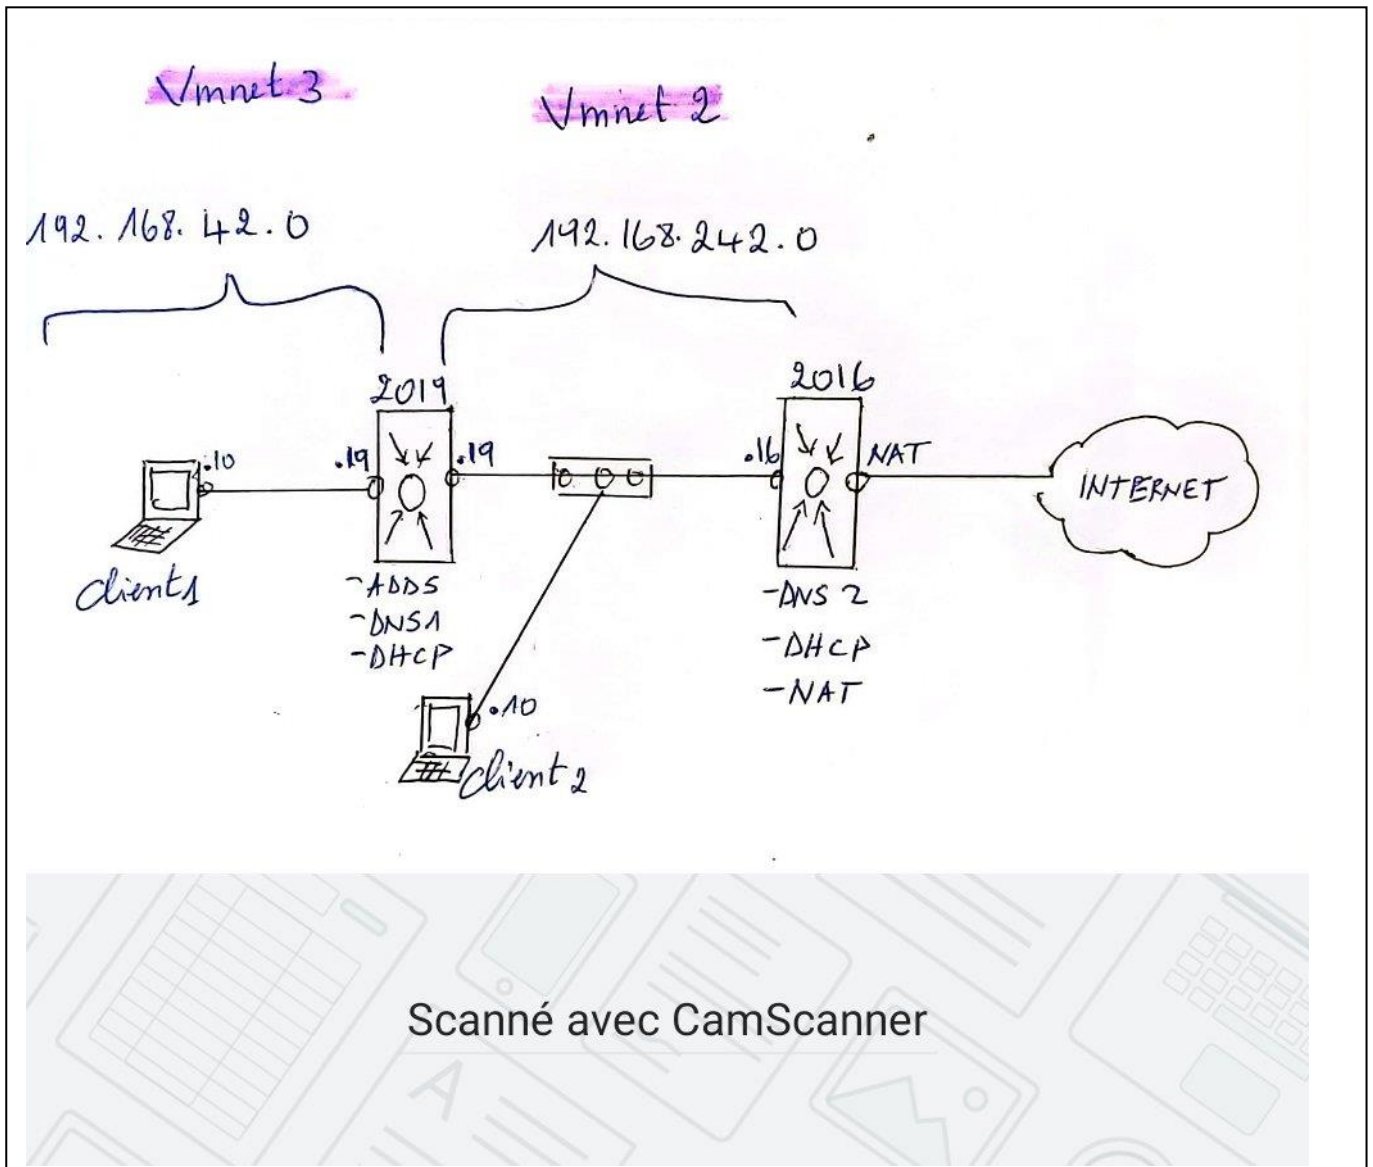 Vmnet 3
Vmnet 2
192.168.42.0
192.168.242.0
2019
2016
.10
.19
.19
.16
NAT
INTERNET
client1
-ADDS
-DNS1
-DHCP
-DNS 2
-DHCP
-NAT
.10
client2
Scanné avec CamScanner